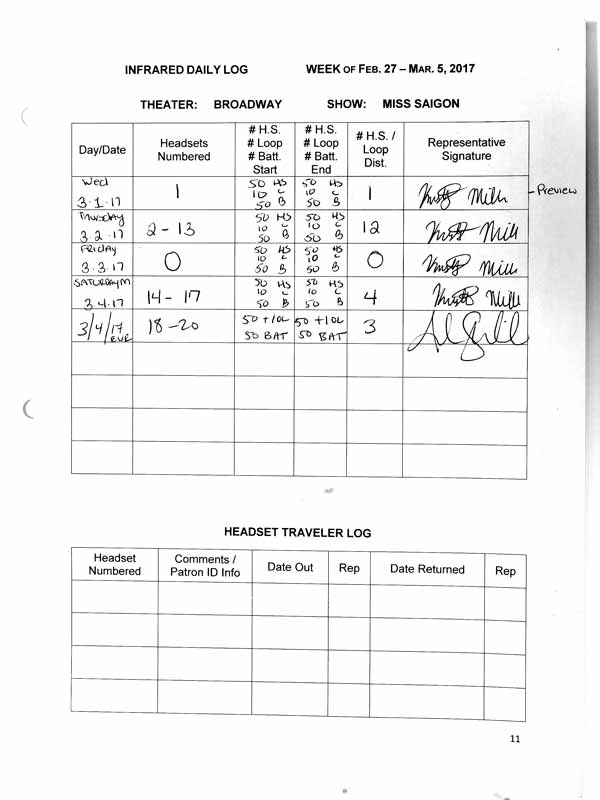 INFRARED DAILY LOG WEEK OF FEB. 27 – MAR. 5, 2017
THEATER: BROADWAY SHOW: MISS SAIGON
Day/Date
Headsets
Numbered
# H.S.
# Loop
# Batt.
Start
# H.S.
# Loop
# Batt.
End
# H.S. /
Loop
Dist.
Representative
Signature
Wed
3.1.17
1
50 HS
10 L
50 B
50 HS
10 L
50 B
1
Preview
Thursday
3.2.17
2-13
50 HS
10 L
50 B
50 HS
10 L
50 B
12
Friday
3.3.17
0
50 HS
10 L
50 B
50 HS
10 L
50 B
0
SATURDAY M
3.4.17
14-17
50 HS
10 L
50 B
50 HS
10 L
50 B
4
3/4/17
EVE
18-20
50 +10L
50 BAT
50 +10L
50 BAT
3
HEADSET TRAVELER LOG
Headset
Numbered
Comments /
Patron ID Info
Date Out
Rep
Date Returned
Rep
11